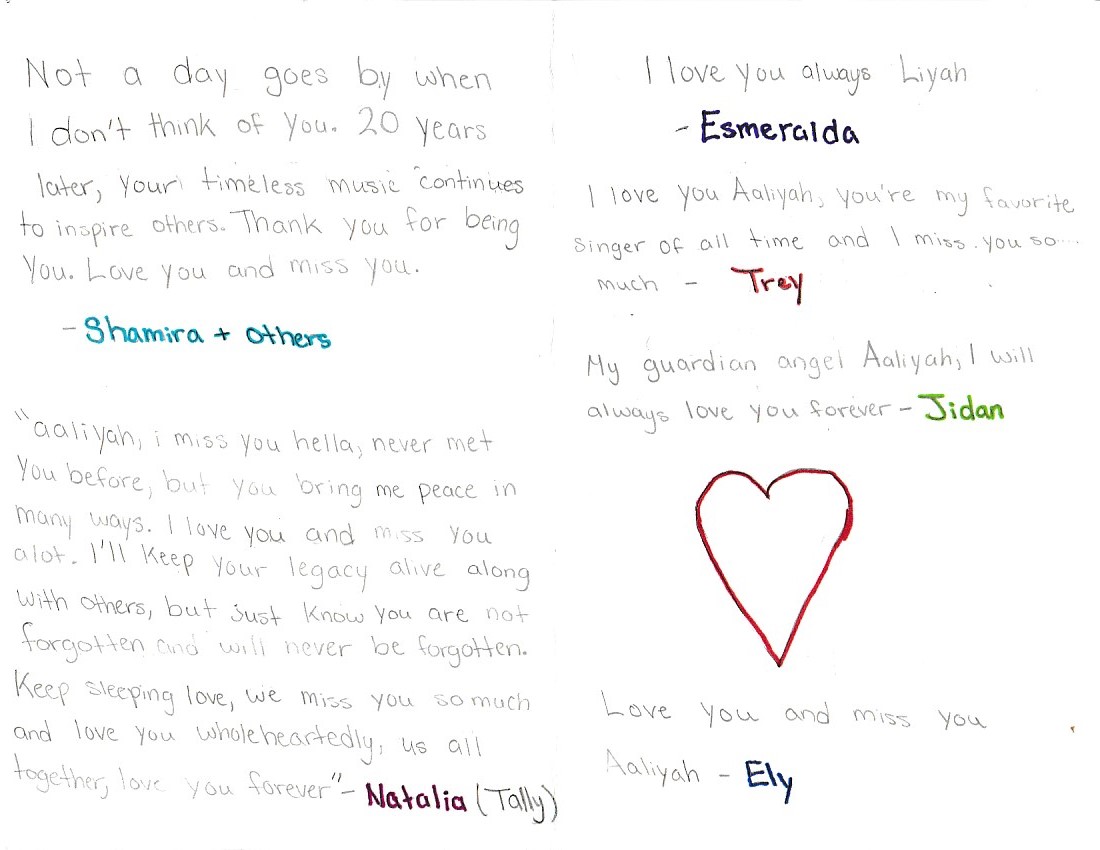 Not a day goes by when
I don't think of you. 20 years
later, your timeless music continues
to inspire others. Thank you for being
you. Love you and miss you.
- Shamira + others
"aaliyah, i miss you hella, never met
you before, but you bring me peace in
many ways. I love you and miss you
alot. I'll keep your legacy alive along
with others, but just know you are not
forgotten and will never be forgotten.
Keep sleeping love, we miss you so much
and love you wholeheartedly, us all
together, love you forever" - Natalia (Tally)
I love you always Liyah
- Esmeralda
I love you Aaliyah, you're my favorite
singer of all time and I miss you so
much - Trey
My guardian angel Aaliyah, I will
always love you forever - Jidan
Love you and miss you
Aaliyah - Ely